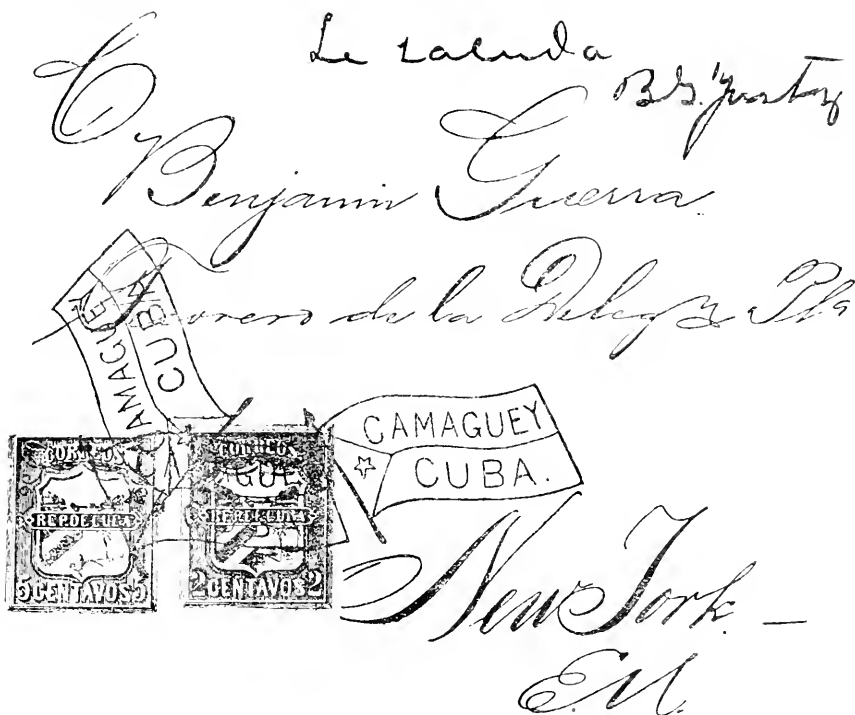 Le saluda
B. G.
C
Benjamin Guerra
Tesorero de la Deleg
CAMAGUEY
CUBA
CAMAGUEY
CUBA.
CORREOS
REP DE CUBA
5 CENTAVOS 5
CORREOS
REP DE CUBA
2 CENTAVOS 2
New York —
E.U.